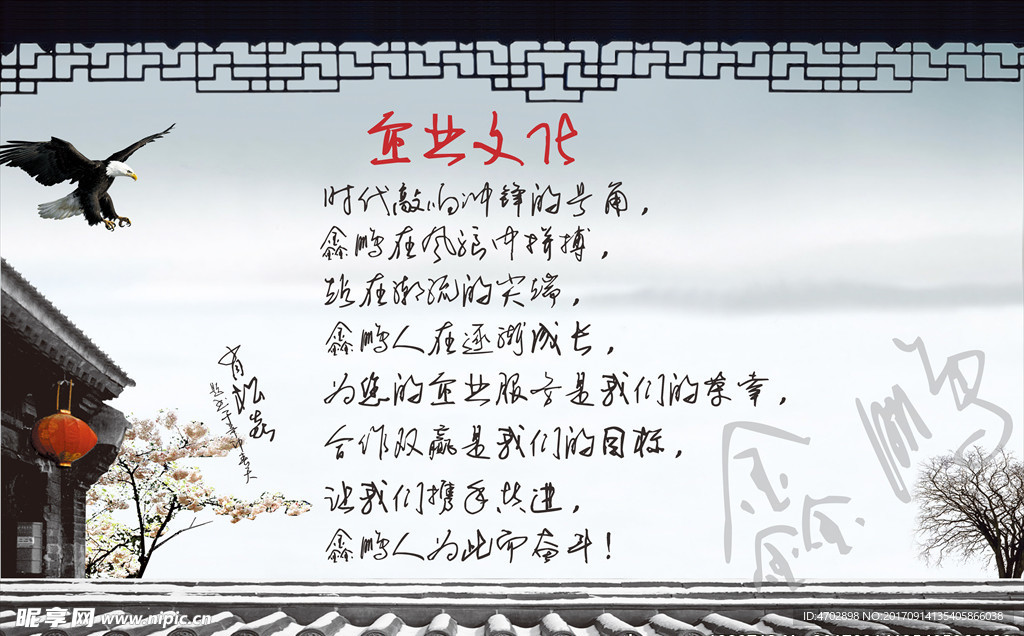 企业文化
时代敲响冲锋的号角，
鑫鹏在风浪中拼搏，
站在潮流的尖端，
鑫鹏人在逐渐成长，
为您的企业服务是我们的荣幸，
合作双赢是我们的目标，
让我们携手共进，
鑫鹏人为此而奋斗！
鑫鹏
昵享网 www.nipic.cn
ID:4702898 NO:20170914135405866038